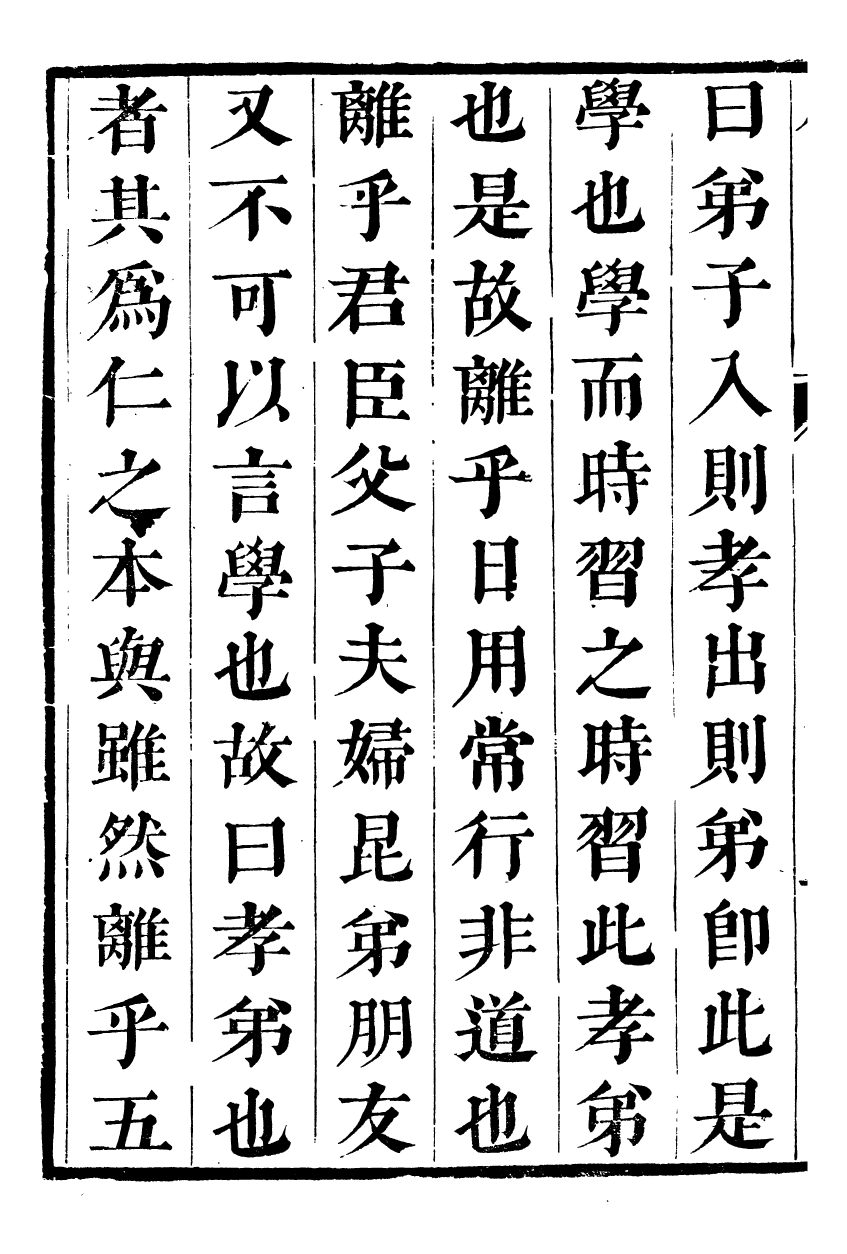 曰弟子入則孝出則弟卽此是
學也學而時習之時習此孝弟
也是故離乎日用常行非道也
離乎君臣父子夫婦昆弟朋友
又不可以言學也故曰孝弟也
者其爲仁之本與雖然離乎五